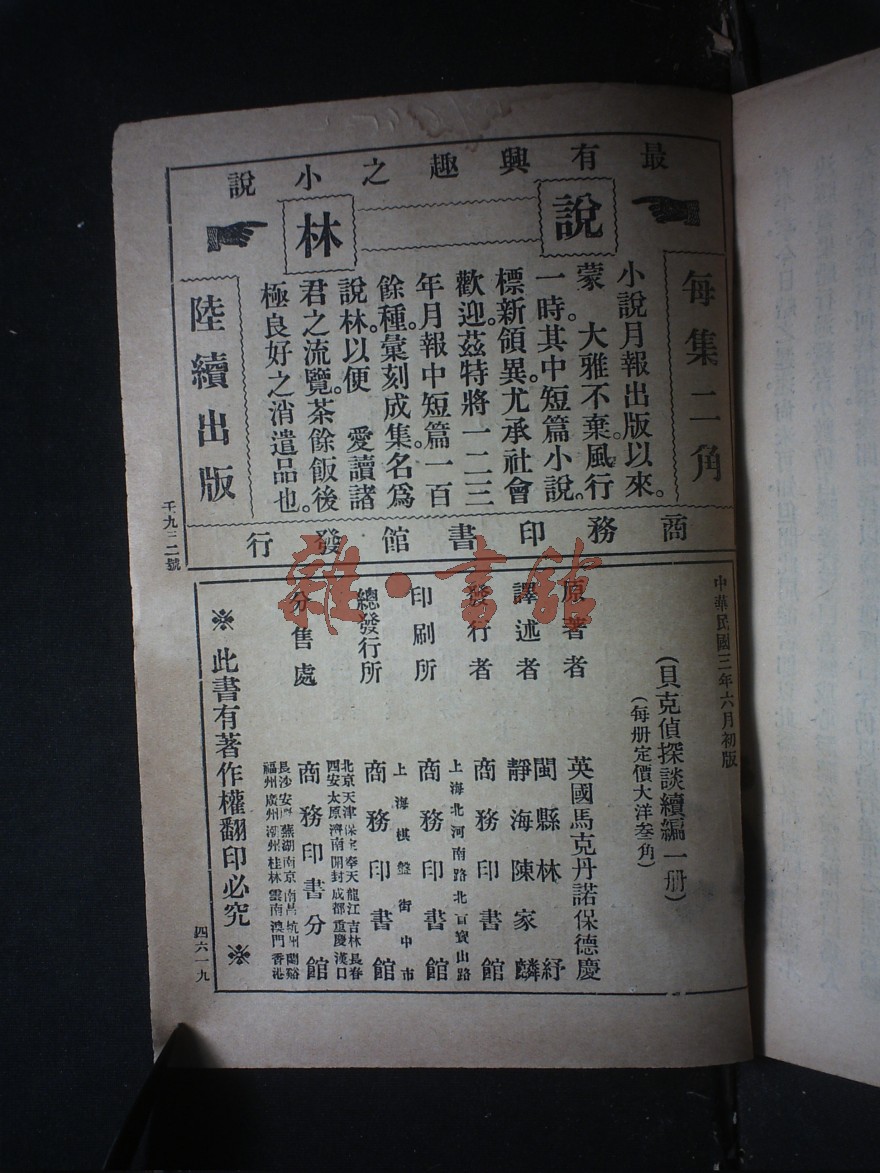 最有興趣之小說
說林
每集二角
小說月報出版以來。
蒙　大雅不棄。風行
一時。其中短篇小說。
標新領異。尤承社會
歡迎。茲特將一二三
年月報中短篇一百
餘種。彙刻成集。名爲
說林。以便　愛讀諸
君之流覽。茶餘飯後
極良好之消遣品也。
陸續出版
商務印書館發行
千九三二號
中華民國三年六月初版
(貝克偵探談續編一册)
(每册定價大洋叁角)
原著者　英國馬克丹諾保德慶
譯述者　閩縣林紓
靜海陳家麟
發行者　商務印書館
上海北河南路北首寶山路
印刷所　商務印書館
上海棋盤街中市
總發行所　商務印書館
北京天津保定奉天龍江吉林長春
西安太原濟南開封成都重慶漢口
分售處　商務印書分館
長沙安慶蕪湖南京南昌杭州蘭谿
福州廣州潮州桂林雲南澳門香港
※此書有著作權翻印必究※
四六一九
雜·書館